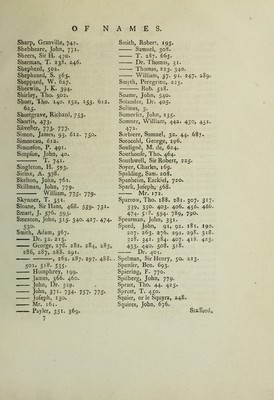 OF NAMES.
Sharp, Granville, 741.
Shebbeare, John, 731.
Sheers, Sir H. 470.
Sherman, T. 238. 246.
Shephard, 502.
Shephaard, S. 565.
Sheppard, W. 627.
Sherwin, J. K. 394.
Shirley, Tho. 502.
Shuet, Tho. 140. 152, 153. 612.
625.
Shuttgrave, Richard, 753.
Shortis, 473.
Silvester, 773. 777.
Simon, James, 93. 612. 750.
Simoneau, 612.
Simpson, P. 491.
Simpson, John, 40.
—— T. 741.
Singleton, H. 593.
Sirius, A. 376.
Skelton, John, 761.
Skillman, John, 779.
—— William, 775. 779.
Skynner, T. 551.
Sloane, Sir Hans, 468. 539. 731.
Smart, J. 576. 595.
Smeaton, John, 315. 340. 427. 474.
530.
Smith, Adam, 367.
—— Dr. 32. 213.
—— George, 278. 281. 284, 285,
286, 287, 288. 291.
—— 262. 287. 297. 488.
501. 518. 535.
—— Humphrey, 199.
—— James, 366. 460.
—— John, Dr. 319.
—— John, 371. 734. 757. 775.
—— Joseph, 130.
—— Mr. 161.
—— Payler, 351. 369.
7
Smith, Robert, 195.
—— Samuel, 308.
—— T. 287. 665.
—— Dr. Thomas, 31.
—— Thomas, 213. 340.
—— William, 37. 91. 247. 289.
Smyth, Peregrine, 223.
—— Rob. 528.
Soane, John, 540.
Solander, Dr. 405.
Solinus, 3.
Somerset, John, 135.
Somner, William, 442. 450, 451.
472.
Sorbiere, Samuel, 32. 44. 687.
Sotocold, George, 296.
Souligné, M. de, 624.
Southouse, Tho. 464.
Southwell, Sir Robert, 225.
Soyer, Charles, 169.
Spalding, Sam. 208.
Spanheim, Ezekiel, 720.
Spark, Joseph, 568.
—— Mr. 172.
Sparrow, Tho. 188. 281. 307. 317.
339. 350. 403. 406. 456. 460.
474. 518. 554. 789. 790.
Spearman, John, 331.
Speed, John, 91, 92. 181. 190.
207. 263. 276. 291. 298. 318.
328. 341. 384. 407. 418. 423.
435. 440. 508. 518.
—— Dr. 401.
Spelman, Sir Henry, 50. 213.
Spenser, Ben. 693.
Spiering, F. 770.
Spilberg, John, 779.
Sprat, Tho. 44. 425.
Sprent, T. 450.
Squier, or le Squyra, 248.
Squires, John, 676.
Stafford,